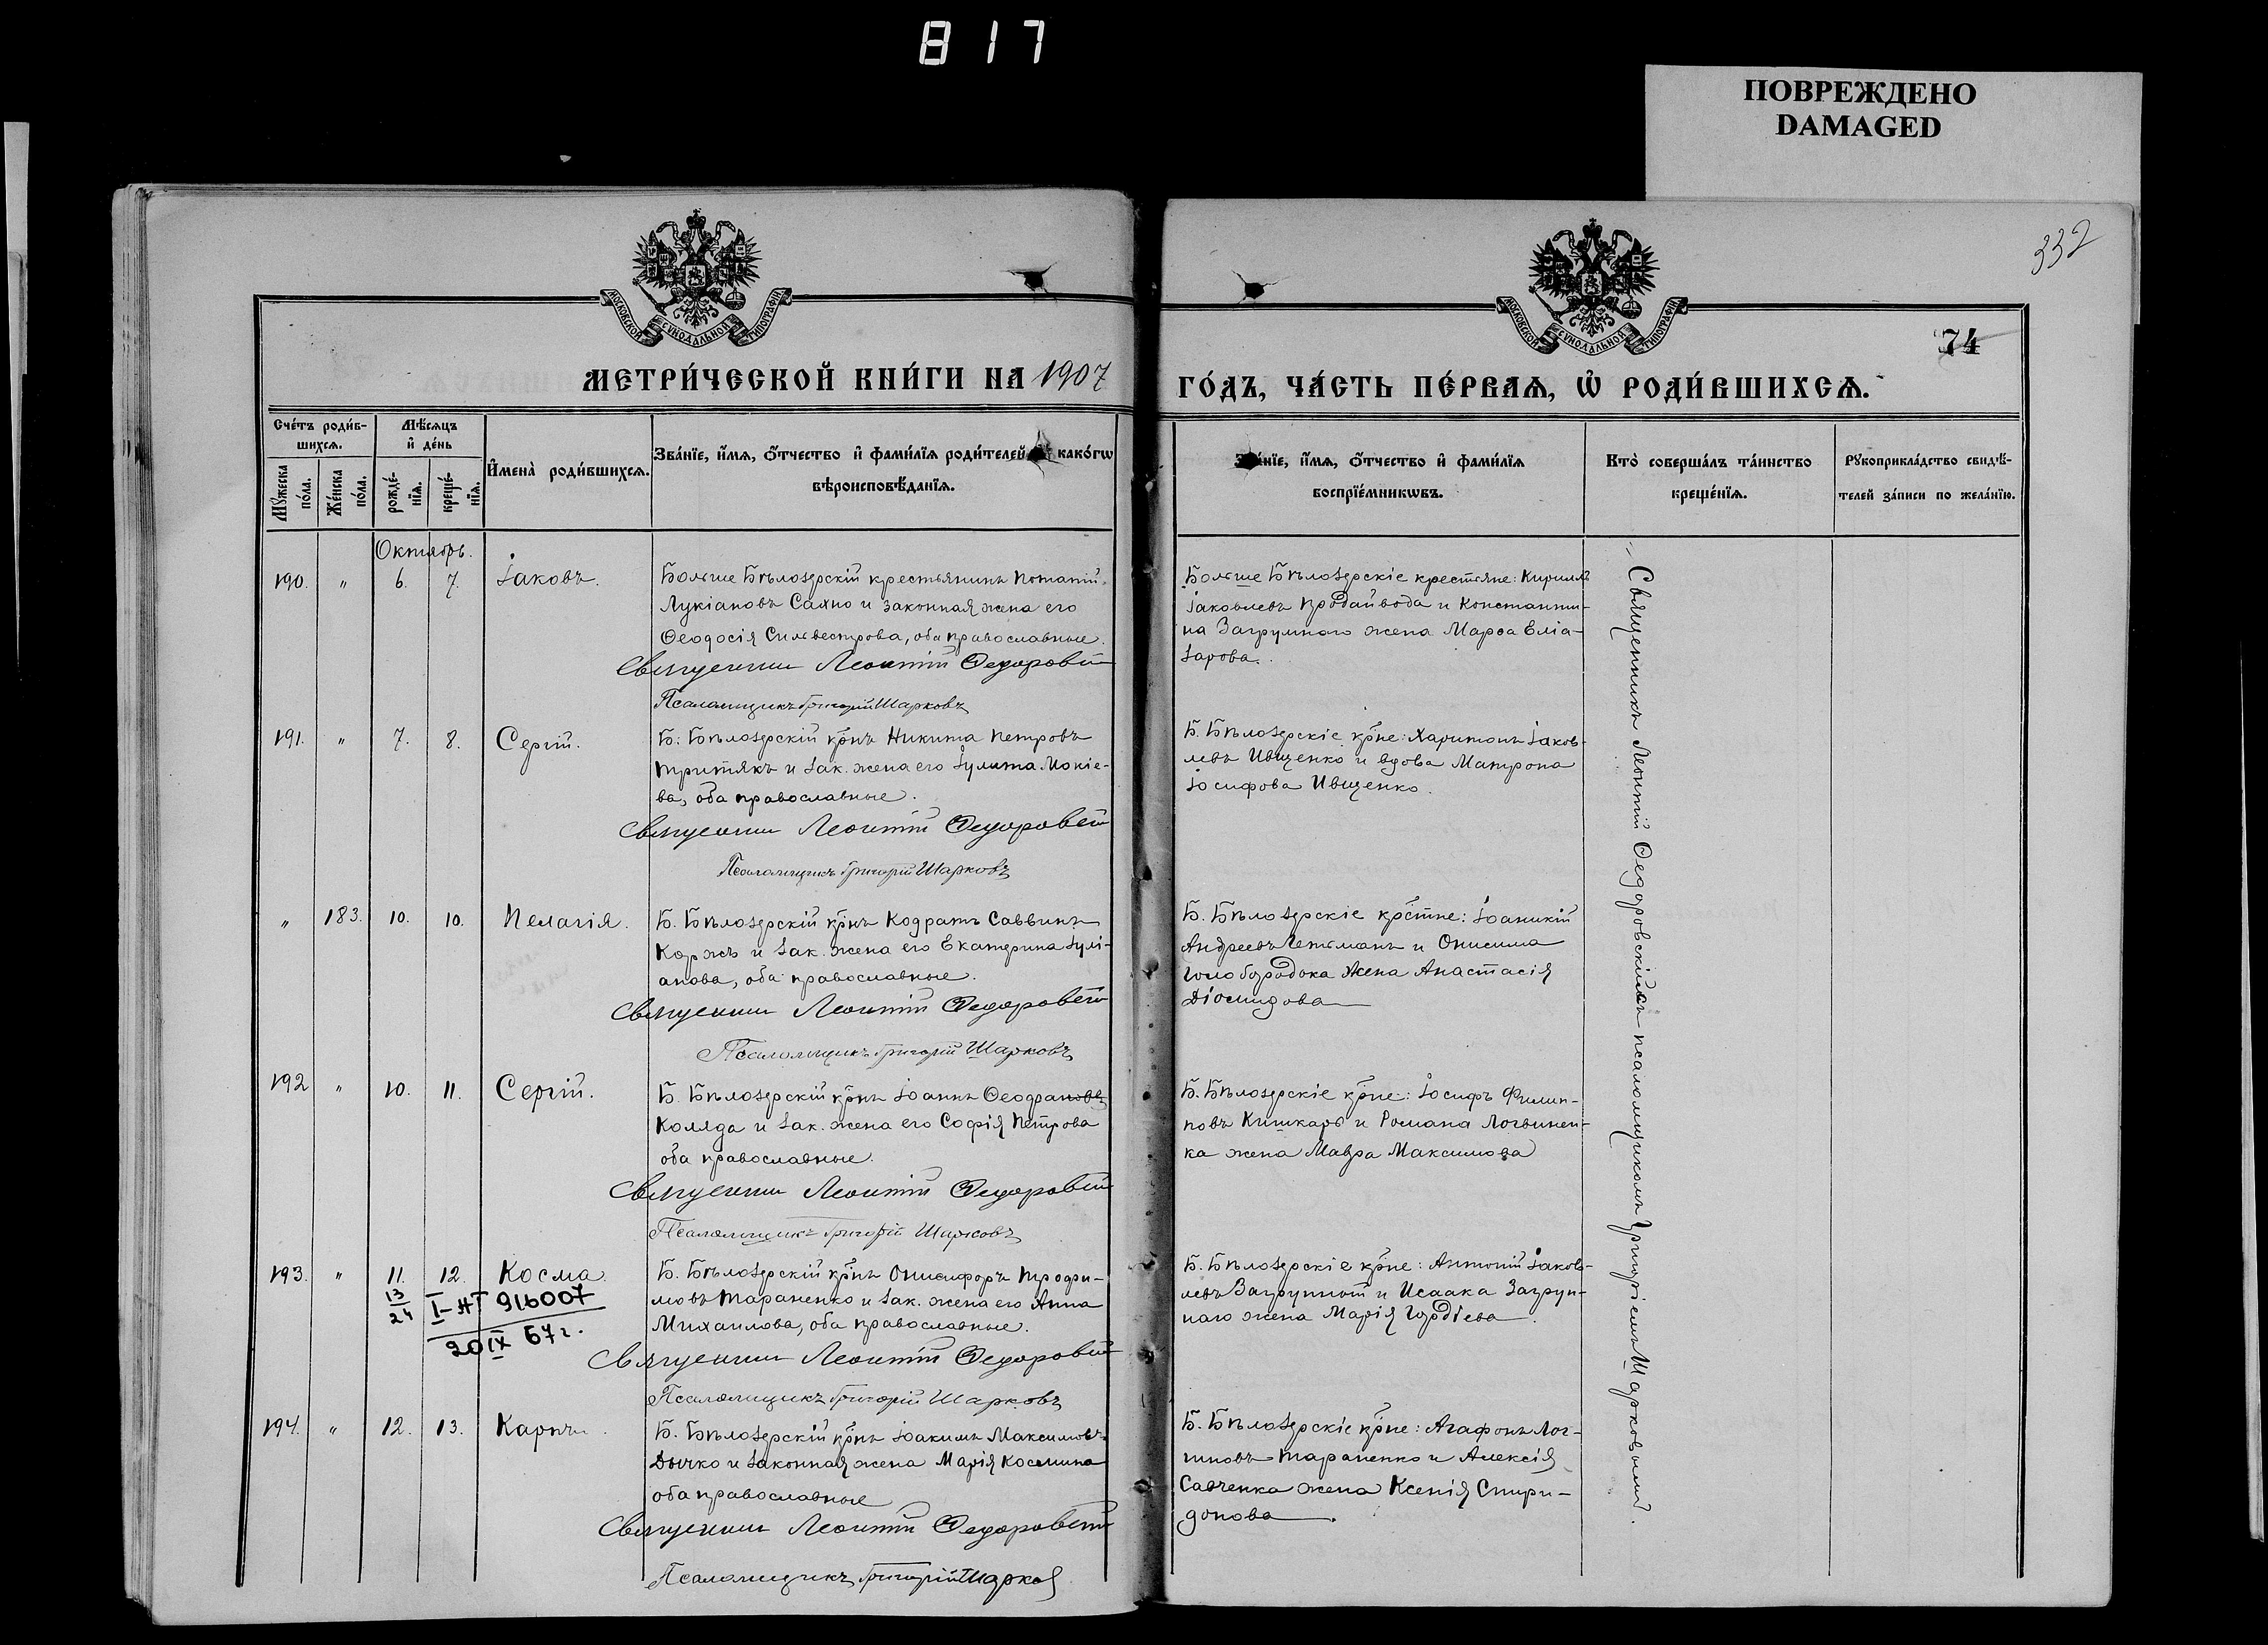 817
ПОВРЕЖДЕНО
DAMAGED
332
МОСКОВСКОЙ СУНОДАЛЬНОЙ ТИПОГРАФІИ
МОСКОВСКОЙ СУНОДАЛЬНОЙ ТИПОГРАФІИ
74
МЕТРИ́ЧЕСКОЙ КНИ́ГИ НА 1907
ГО́ДЪ, ЧА́СТЬ ПЕ́РВАѦ, Ѡ҆ РОДИ́ВШИХСѦ.
Сче́тъ роди́в-
шихсѧ.
Мѣ́сѧцъ
и҆ де́нь
Му́жеска
по́ла.
Же́нска
по́ла.
рожде́-
нїѧ.
креще́-
нїѧ.
И҆мена̀ роди́вшихсѧ.
Зва́нїе, и҆́мѧ, ѻ҆́тчество и҆ фами́лїѧ роди́телей како́гѡ
вѣроисповѣ́данїѧ.
нїе, и҆́мѧ, ѻ҆́тчество и҆ фами́лїѧ
воспрїе́мникѡвъ.
Кто̀ соверша́лъ та́инство
креще́нїѧ.
Рꙋкоприкла́дство свидѣ́-
телей за́писи по жела́нїю.
Октябрь.
190. " 6. 7. Іаковъ.
Больше Бѣлозерскій крестьянинъ Потапій
Лукіановъ Саяно и законная жена его
Ѳеодосія Сильвестрова, оба православные.
Священник Леонтій Федоровскій
Псаломщикъ Григорій Шарковъ
Больше Бѣлозерскіе крестьяне: Кириллъ
Іаковлевъ Продайвода и Константи-
на Загрумнаго жена Марѳа Еліа-
зарова.
191. " 7. 8. Сергій.
Б. Бѣлозерскій крнъ Никита Петровъ
Третякъ и зак. жена его Іулита Мокіе-
ва, оба православные.
Священник Леонтій Федоровскій
Псаломщикъ Григорій Шарковъ
Б. Бѣлозерскіе крне: Харитонъ Іаков-
левъ Ивщенко и вдова Матрона
Іосифова Ивщенко.
" 183. 10. 10. Пелагія.
Б. Бѣлозерскій крнъ Кодратъ Саввинъ
Коржъ и зак. жена его Екатерина Іулі-
анова, оба православные.
Священник Леонтій Федоровскій
Псаломщикъ Григорій Шарковъ
Б. Бѣлозерскіе крстне: Іоаникій
Андреевъ Гетманъ и Онисима
Голобородока жена Анастасія
Діомидова
192 " 10. 11. Сергій.
Б. Бѣлозерскій крнъ Іоаннъ Ѳеофановъ
Коляда и зак. жена его Софія Петрова
оба православные.
Священник Леонтій Федоровскій
Псаломщикъ Григорій Шарковъ
Б. Бѣлозерскіе крне: Іосифъ Филип-
повъ Кишкарь и Романа Логвинен-
ка жена Мавра Максимова
193. " 11. 12. Косма.
13
24 I-НГ 916007
20 IX 67 г.
Б. Бѣлозерскій крнъ Онисифоръ Трофи-
мовъ Тараненко и зак. жена его Анна
Михаилова, оба православные.
Священник Леонтій Федоровскій
Псаломщикъ Григорій Шарковъ
Б. Бѣлозерскіе крне: Антоній Іаков-
левъ и Исаака Загрун-
наго жена Марія Гордіева.
194. " 12. 13. Карпъ.
Б. Бѣлозерскій крнъ Іоакимъ Максимовъ
Дычко и законная жена Марія Космина
оба православные
Священник Леонтій Федоровскій
Псаломщикъ Григорій Шарков
Б. Бѣлозерскіе крне: Агафонъ Лог-
гиновъ Тараненко и Алексія
Савченка жена Ксенія Спири-
донова.
Священникъ Леонтій Ѳедоровскій съ псаломщикомъ Григоріемъ Шарковымъ.